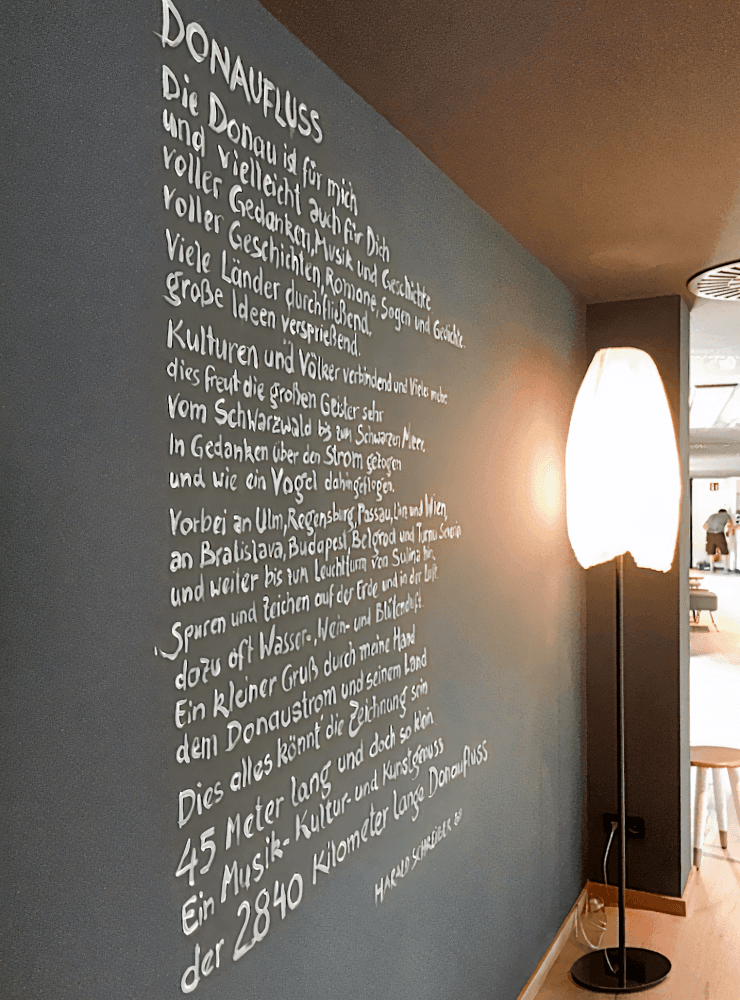 DONAUFLUSS
Die Donau ist für mich
und vielleicht auch für Dich
voller Gedanken, Musik und Geschichte
voller Geschichten, Romane, Sagen und Gedichte.
Viele Länder durchfließend.
große Ideen versprießend.
Kulturen und Völker verbindend und Vieles mehr
dies freut die großen Geister sehr
Vom Schwarzwald bis zum Schwarzen Meer,
In Gedanken über den Strom gezogen
und wie ein Vogel dahingeflogen.
Vorbei an Ulm, Regensburg, Passau, Linz und Wien,
an Bratislava, Budapest, Belgrad und Turnu Severin
und weiter bis zum Leuchtturm von Sulina hin.
Spuren und Zeichen auf der Erde und in der Luft.
dazu oft Wasser-, Wein- und Blütenduft.
Ein kleiner Gruß durch meine Hand
dem Donaustrom und seinem Land
Dies alles könnt' die Zeichnung sein
45 Meter lang und doch so klein.
Ein Musik- Kultur- und Kunstgenuss
der 2840 Kilometer lange Donaufluss
HARALD SCHREIBER